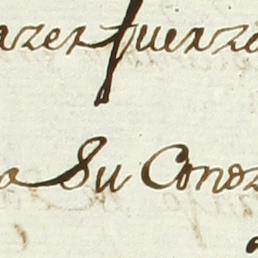 azer fuerza
a Su Cono